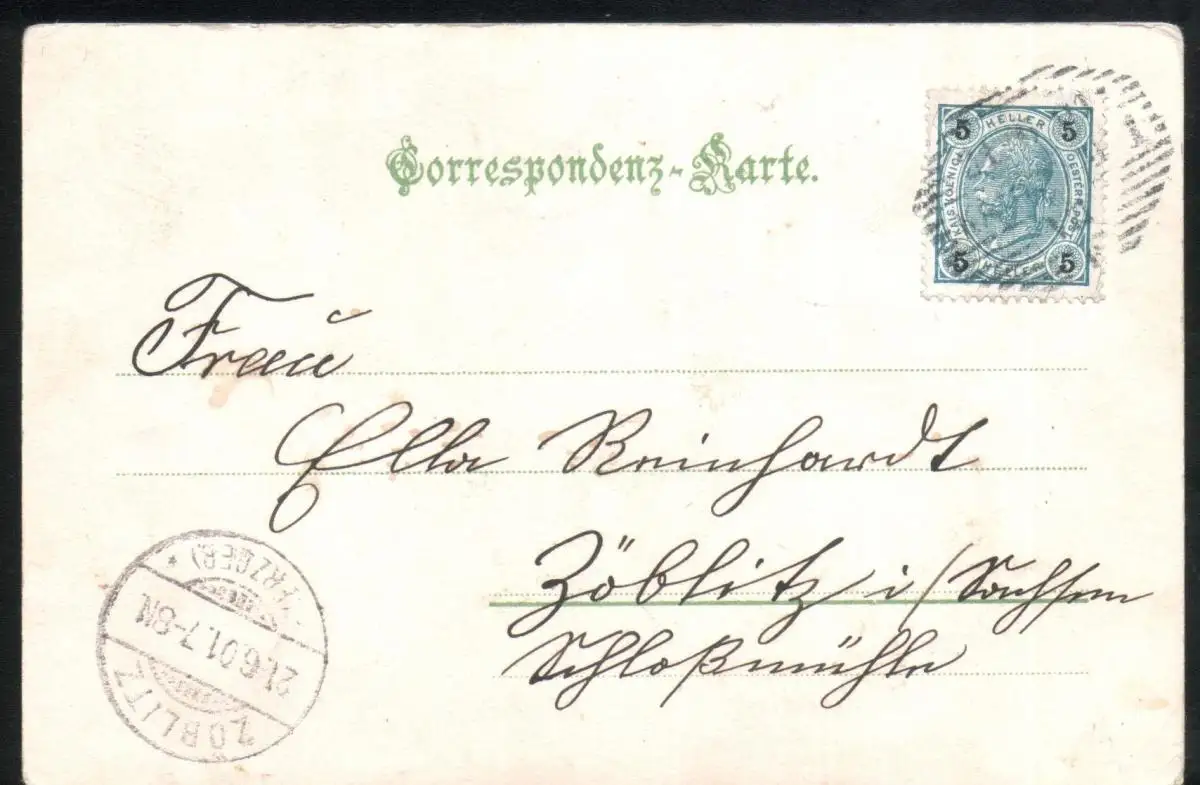 Correspondenz-Karte.
5 HELLER 5
KAIS. KOENIGL. OESTERR. POST
5 HELLER 5
Frau
Ella Reinhardt
Zöblitz i/Sachsen
Schloßmühle
ZÖBLITZ
21.6.01.7-8N.
(ERZGEB.) *